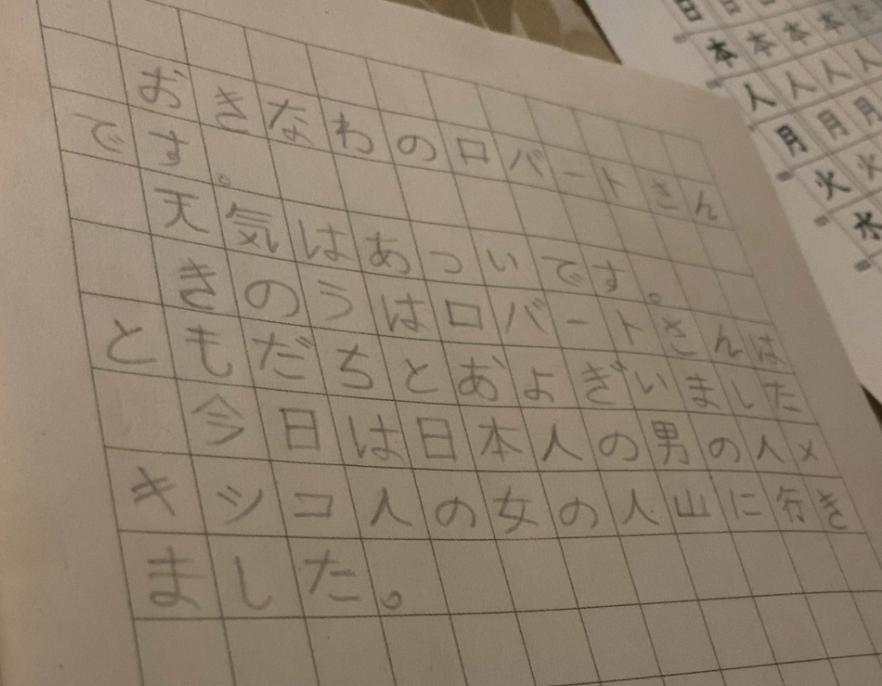 おきなわのロバートさん
です。
天気はあついです。
きのうはロバートさんは
ともだちとおよぎいました
今日は日本人の男の人メ
キシコ人の女の人山に行き
ました。
本本本本
人人人人
月月月
火火
水